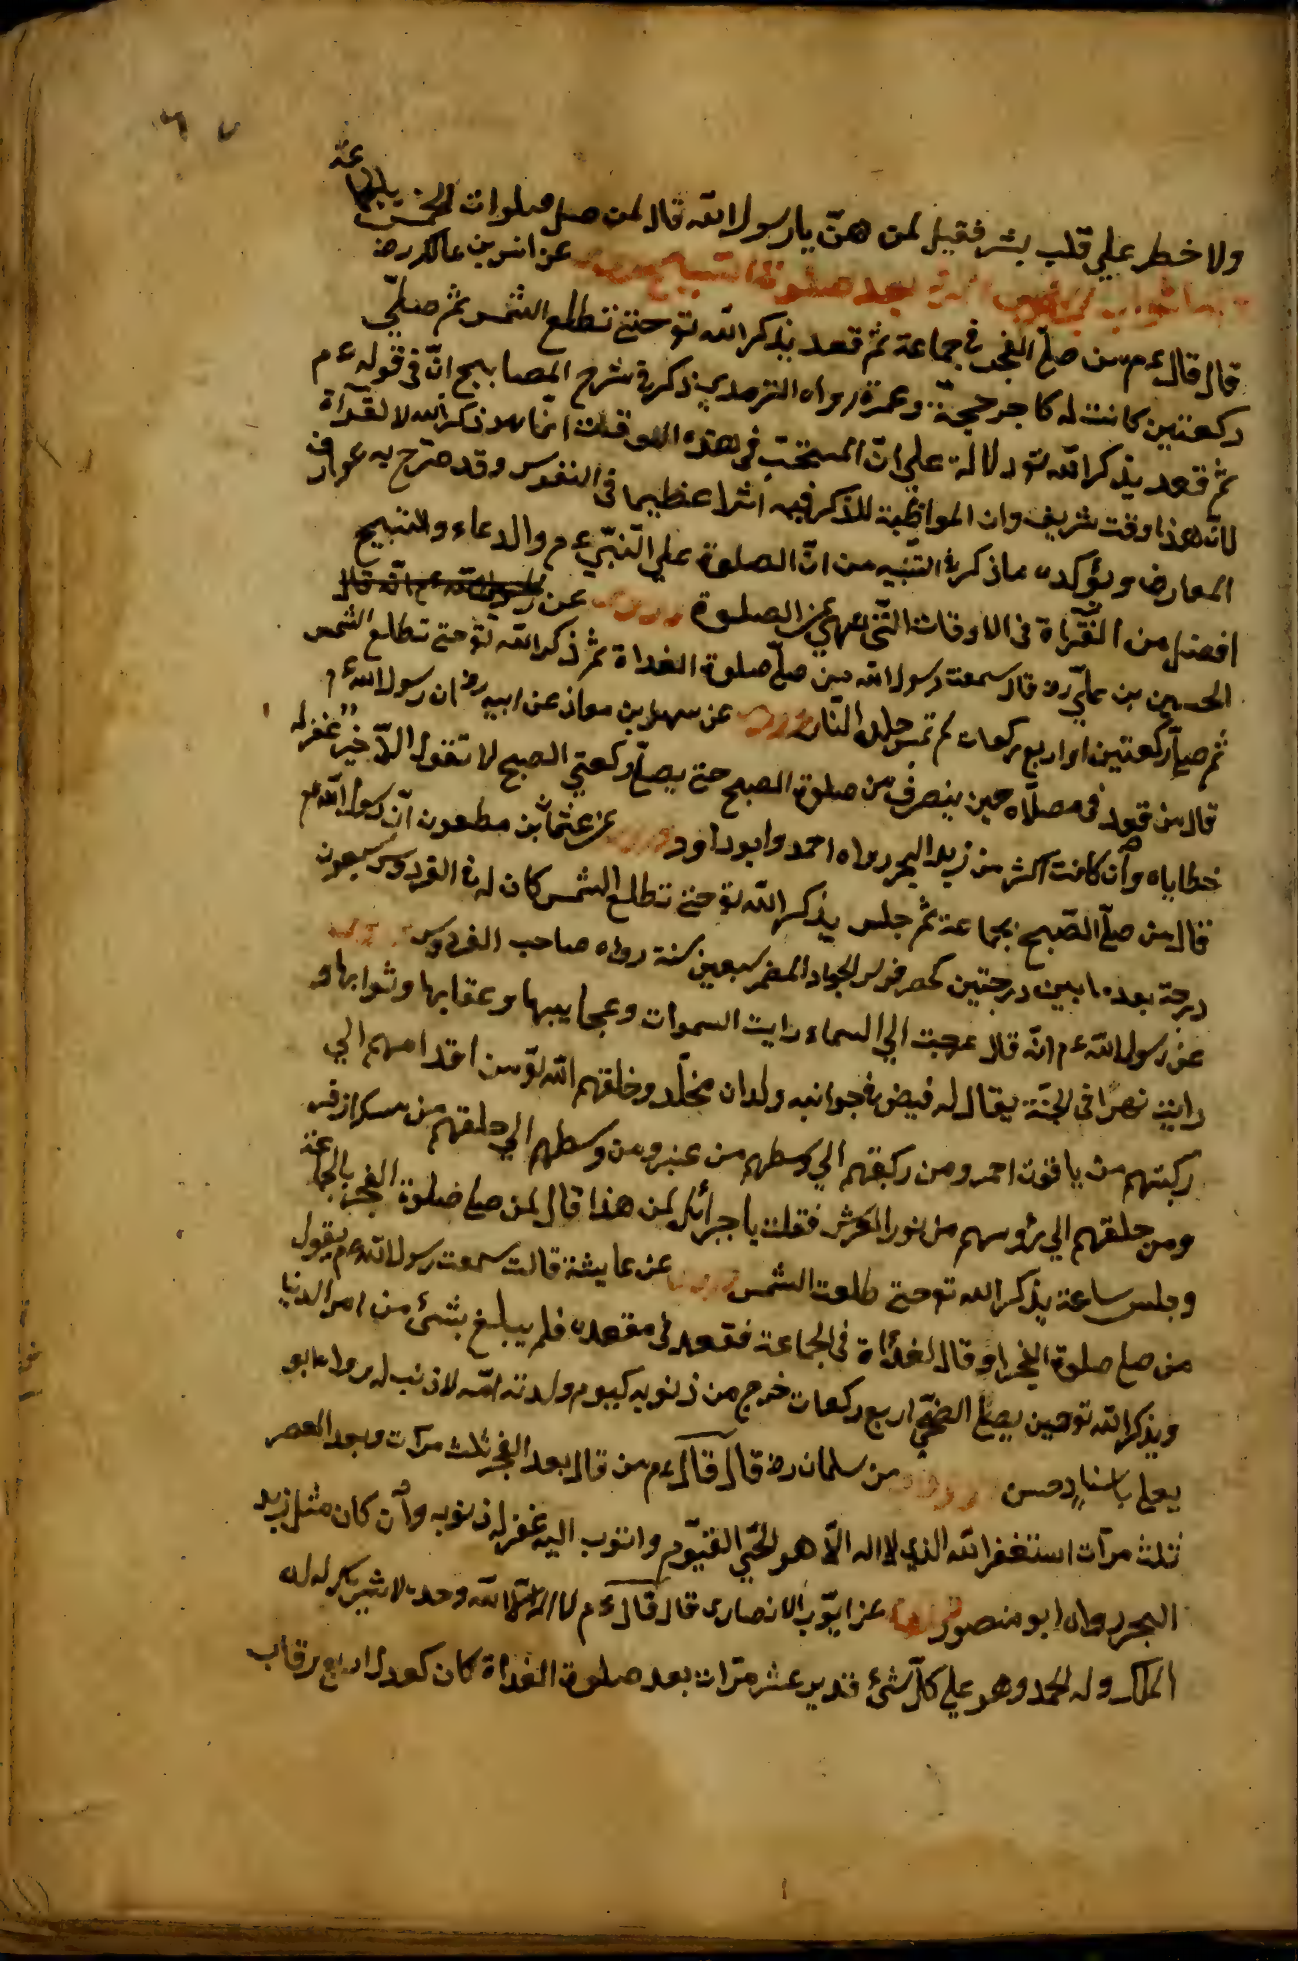 ولا خطر علي قلب بشر فقيل لمن هنّ يا رسول الله قال لمن صلي صلوات الخمس بالجماعة
بعد صلوة الصبح عن انس بن مالك رض
قال قال ءم من صلّ الفجر في جماعة ثم قعد يذكر الله تع حتي تطلع الشمس ثم صلّي
ركعتين كانت له كاجر حجّة وعمرة رواه الترمدي ذكر في شرح المصابيح انّ في قوله ءم
ثم قعد يذكر الله تع دلالة علي انّ المستحبّ في هذه الاوقات انما هو ذكر الله لا لقرآة
لانّ هذا وقت شريف وان المواظبة للذكر فيه اثرا عظيما في النفوس وقد صرّح به عوارف
المعارف ويؤكده ما ذكر في القنيه من انّ الصلوة علي النّبيّ ءم والدعاء والتسبيح
افضل من القرآة في الاوقات التّي نهي عن الصلوة وروي عن
الحسين بن عليّ رض قال سمعت رسول الله من صلّ صلوة الغداة ثم ذكر الله تع حتي تطلع الشمس
ثم صلّ ركعتين او اربع ركعات لم تمس جلده النّار وروي عن سهل بن معاذ عن ابيه رض ان رسول الله ءم
قال من قعد في مصلّاه حين ينصرف من صلوة الصبح حتي يصلّ ركعتي الصبح لا تقول الّا خير غفر له
خطاياه وان كانت اكثر من زبد البحر رواه احمد وابوداود وروي عن عثمان بن مظعون انّ رسول الله ءم
قال من صلّ الصّبح بجماعة ثم جلس يذكر الله تع حتي تطلع الشمس كان له في الفردوس سبعون
درجة بعد ما بين درجتين كحصر فرس الجواد المضمر سبعين سنة رواه صاحب الفردوس
عن رسول الله ءم انّه قال عرجت الي السماء رايت السموات وعجايبها وعقابها وثوابها و
رايت نهرًا في الجنّة يقال له فيض في جوانبه ولدان مخلّد وخلقهم الله تع من اقدامهم الي
ركبتهم من ياقوت احمر ومن ركبتهم الي وسطهم من عنبر ومن وسطهم الي حلقهم من مسك ازفر
ومن حلقهم الي رؤسهم من نور العرش فقلت يا جبرائل لمن هذا قال لمن صلي صلوة الفجر بالجماعة
وجلس ساعة يذكر الله تع حتي طلعت الشمس وروي عن عايشة قالت سمعت رسول الله ءم يقول
من صلي صلوة الفجر او قال لغداة في الجماعة فقعد في مقعده فلم يبلغ بشئ من امر الدنيا
ويذكر الله تع حين يصلّ الضحي اربع ركعات خرج من ذنوبه كيوم ولدته امّه لا ذنب له رواه ابو
يعلي باسنادٍ حسن وروي عن سلمان رض قال قال ءم من قال بعد الفجر ثلث مرات وبعد العصر
ثلث مرآت استغفر الله الذي لا اله الّا هو الحّي القيّوم واتوب اليه غفر له ذنوبه وان كان مثل زبد
البحر رواه ابو منصور عن ايّوب الانصارى قال قال ءم لا اله الّا الله وحده لا شريك له له
الملك وله الحمد وهو علي كلّ شئ قدير عشر مرّات بعد صلوة الغداة كان كعدل اربع رقاب